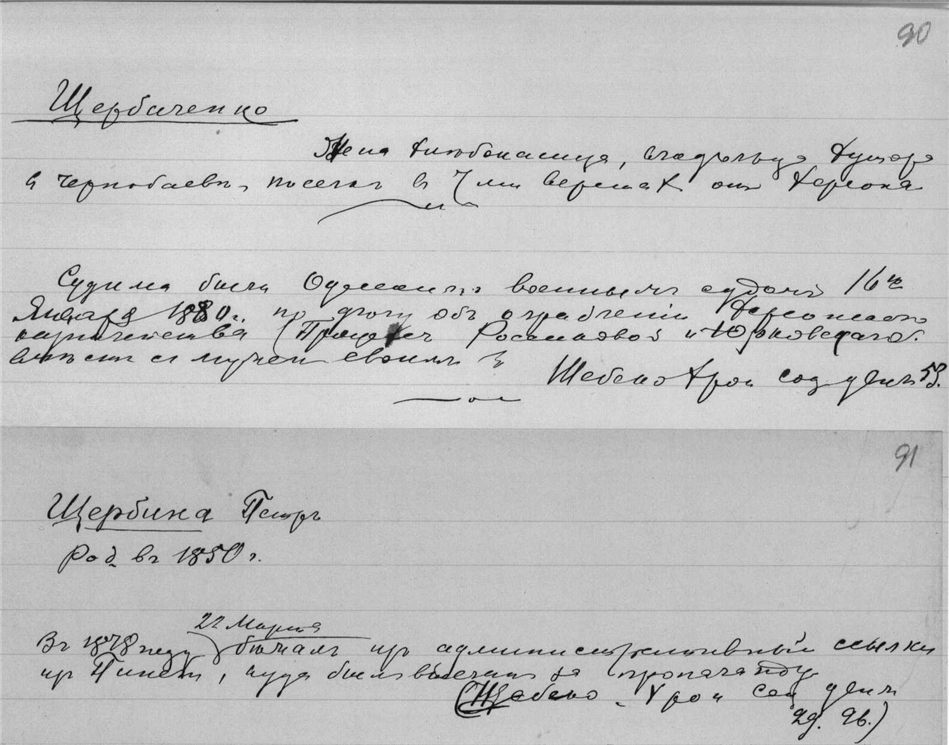 90
Щербаченко
Жена хлебопашца, владельца хутора
въ Чернобаевкѣ, поселкѣ въ 7ми верстах отъ Херсона
Судима была Одесским военнымъ судомъ 16го
Января 1880 г. по делу объ ограблении Херсонского
казначейства (Процессъ Россиковой и Юрковского.
вместе съ мужем своимъ
Шебеко Хрон соц движ 53.
91
Щербина Петръ
Род въ 1850 г.
22 Марта
Въ 1878 году бежалъ изъ административной ссылки
изъ Пинеги, куда былъ выслан за пропаганду
(Шебеко. Хрон соц движ
29. 96.)